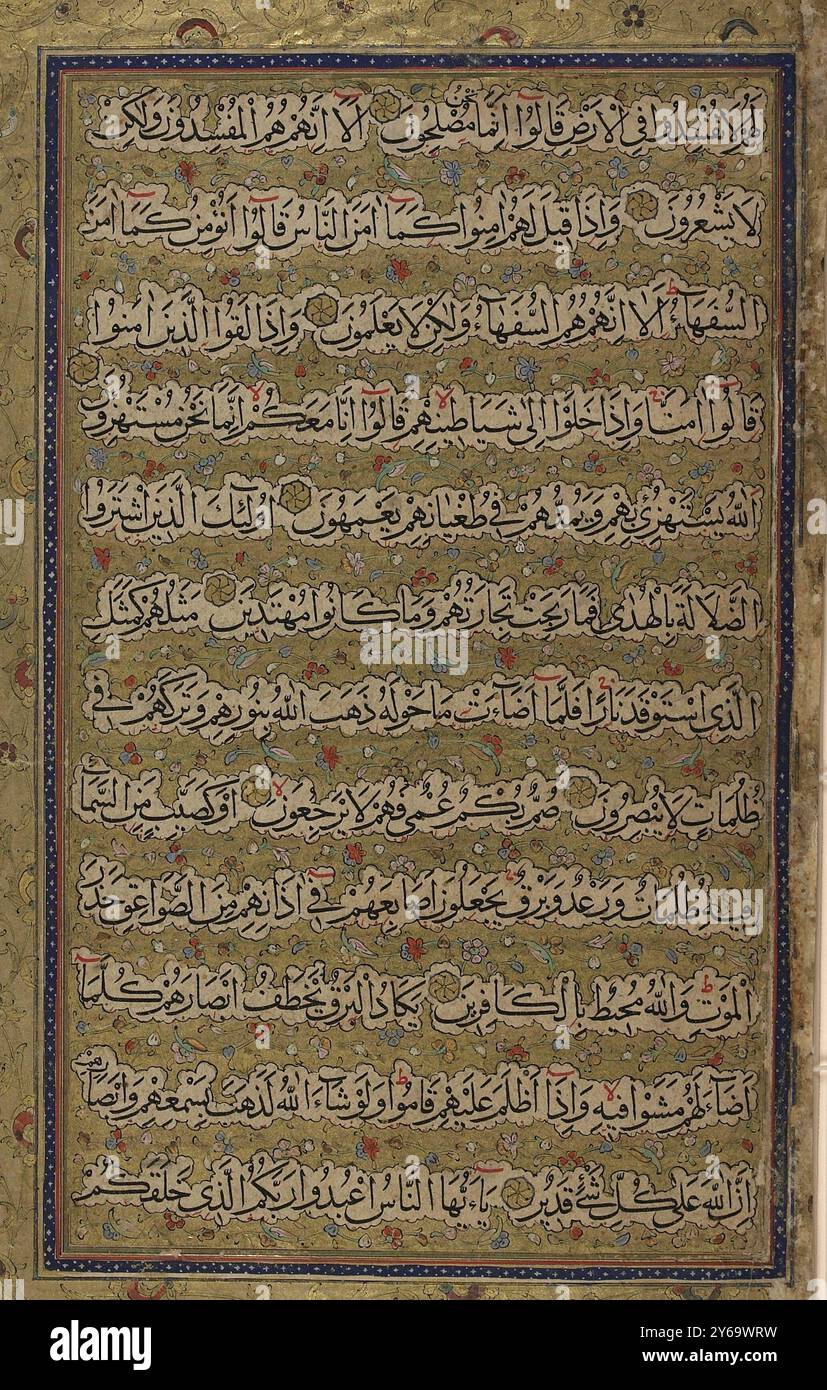 لَهُمْ لَا تُفْسِدُوا فِي الْاَرْضِ قَالُوٓا اِنَّمَا نَحْنُ مُصْلِحُونَ اَلَٓا اِنَّهُمْ هُمُ الْمُفْسِدُونَ وَلٰكِنْ
لَا يَشْعُرُونَ وَاِذَا قِيلَ لَهُمْ اٰمِنُوا كَمَٓا اٰمَنَ النَّاسُ قَالُوٓا اَنُؤْمِنُ كَمَٓا اٰمَنَ
السُّفَهَٓاءُ اَلَٓا اِنَّهُمْ هُمُ السُّفَهَٓاءُ وَلٰكِنْ لَا يَعْلَمُونَ وَاِذَا لَقُوا الَّذِينَ اٰمَنُوا
قَالُوٓا اٰمَنَّا وَاِذَا خَلَوْا اِلٰى شَيَاطِينِهِمْ قَالُوٓا اِنَّا مَعَكُمْ اِنَّمَا نَحْنُ مُسْتَهْزِؤُنَ
اَللّٰهُ يَسْتَهْزِئُ بِهِمْ وَيَمُدُّهُمْ فِي طُغْيَانِهِمْ يَعْمَهُونَ اُولٰٓئِكَ الَّذِينَ اشْتَرَوُا
الضَّلَالَةَ بِالْهُدٰى فَمَا رَبِحَتْ تِجَارَتُهُمْ وَمَا كَانُوا مُهْتَدِينَ مَثَلُهُمْ كَمَثَلِ
الَّذِي اسْتَوْقَدَ نَارًا فَلَمَّٓا اَضَٓاءَتْ مَا حَوْلَهُ ذَهَبَ اللّٰهُ بِنُورِهِمْ وَتَرَكَهُمْ فِي
ظُلُمَاتٍ لَا يُبْصِرُونَ صُمٌّ بُكْمٌ عُمْيٌ فَهُمْ لَا يَرْجِعُونَ اَوْ كَصَيِّبٍ مِنَ السَّمَٓاءِ
فِيهِ ظُلُمَاتٌ وَرَعْدٌ وَبَرْقٌ يَجْعَلُونَ اَصَابِعَهُمْ فِٓي اٰذَانِهِمْ مِنَ الصَّوَاعِقِ حَذَرَ
الْمَوْتِ وَاللّٰهُ مُحِيطٌ بِالْكَافِرِينَ يَكَادُ الْبَرْقُ يَخْطَفُ اَبْصَارَهُمْ كُلَّمَٓا
اَضَٓاءَ لَهُمْ مَشَوْا فِيهِ وَاِذَٓا اَظْلَمَ عَلَيْهِمْ قَامُوا وَلَوْ شَٓاءَ اللّٰهُ لَذَهَبَ بِسَمْعِهِمْ وَاَبْصَارِهِمْ
اِنَّ اللّٰهَ عَلٰى كُلِّ شَيْءٍ قَدِيرٌ يَٓا اَيُّهَا النَّاسُ اعْبُدُوا رَبَّكُمُ الَّذِي خَلَقَكُمْ
alamy
Image ID: 2Y69WRW
www.alamy.com